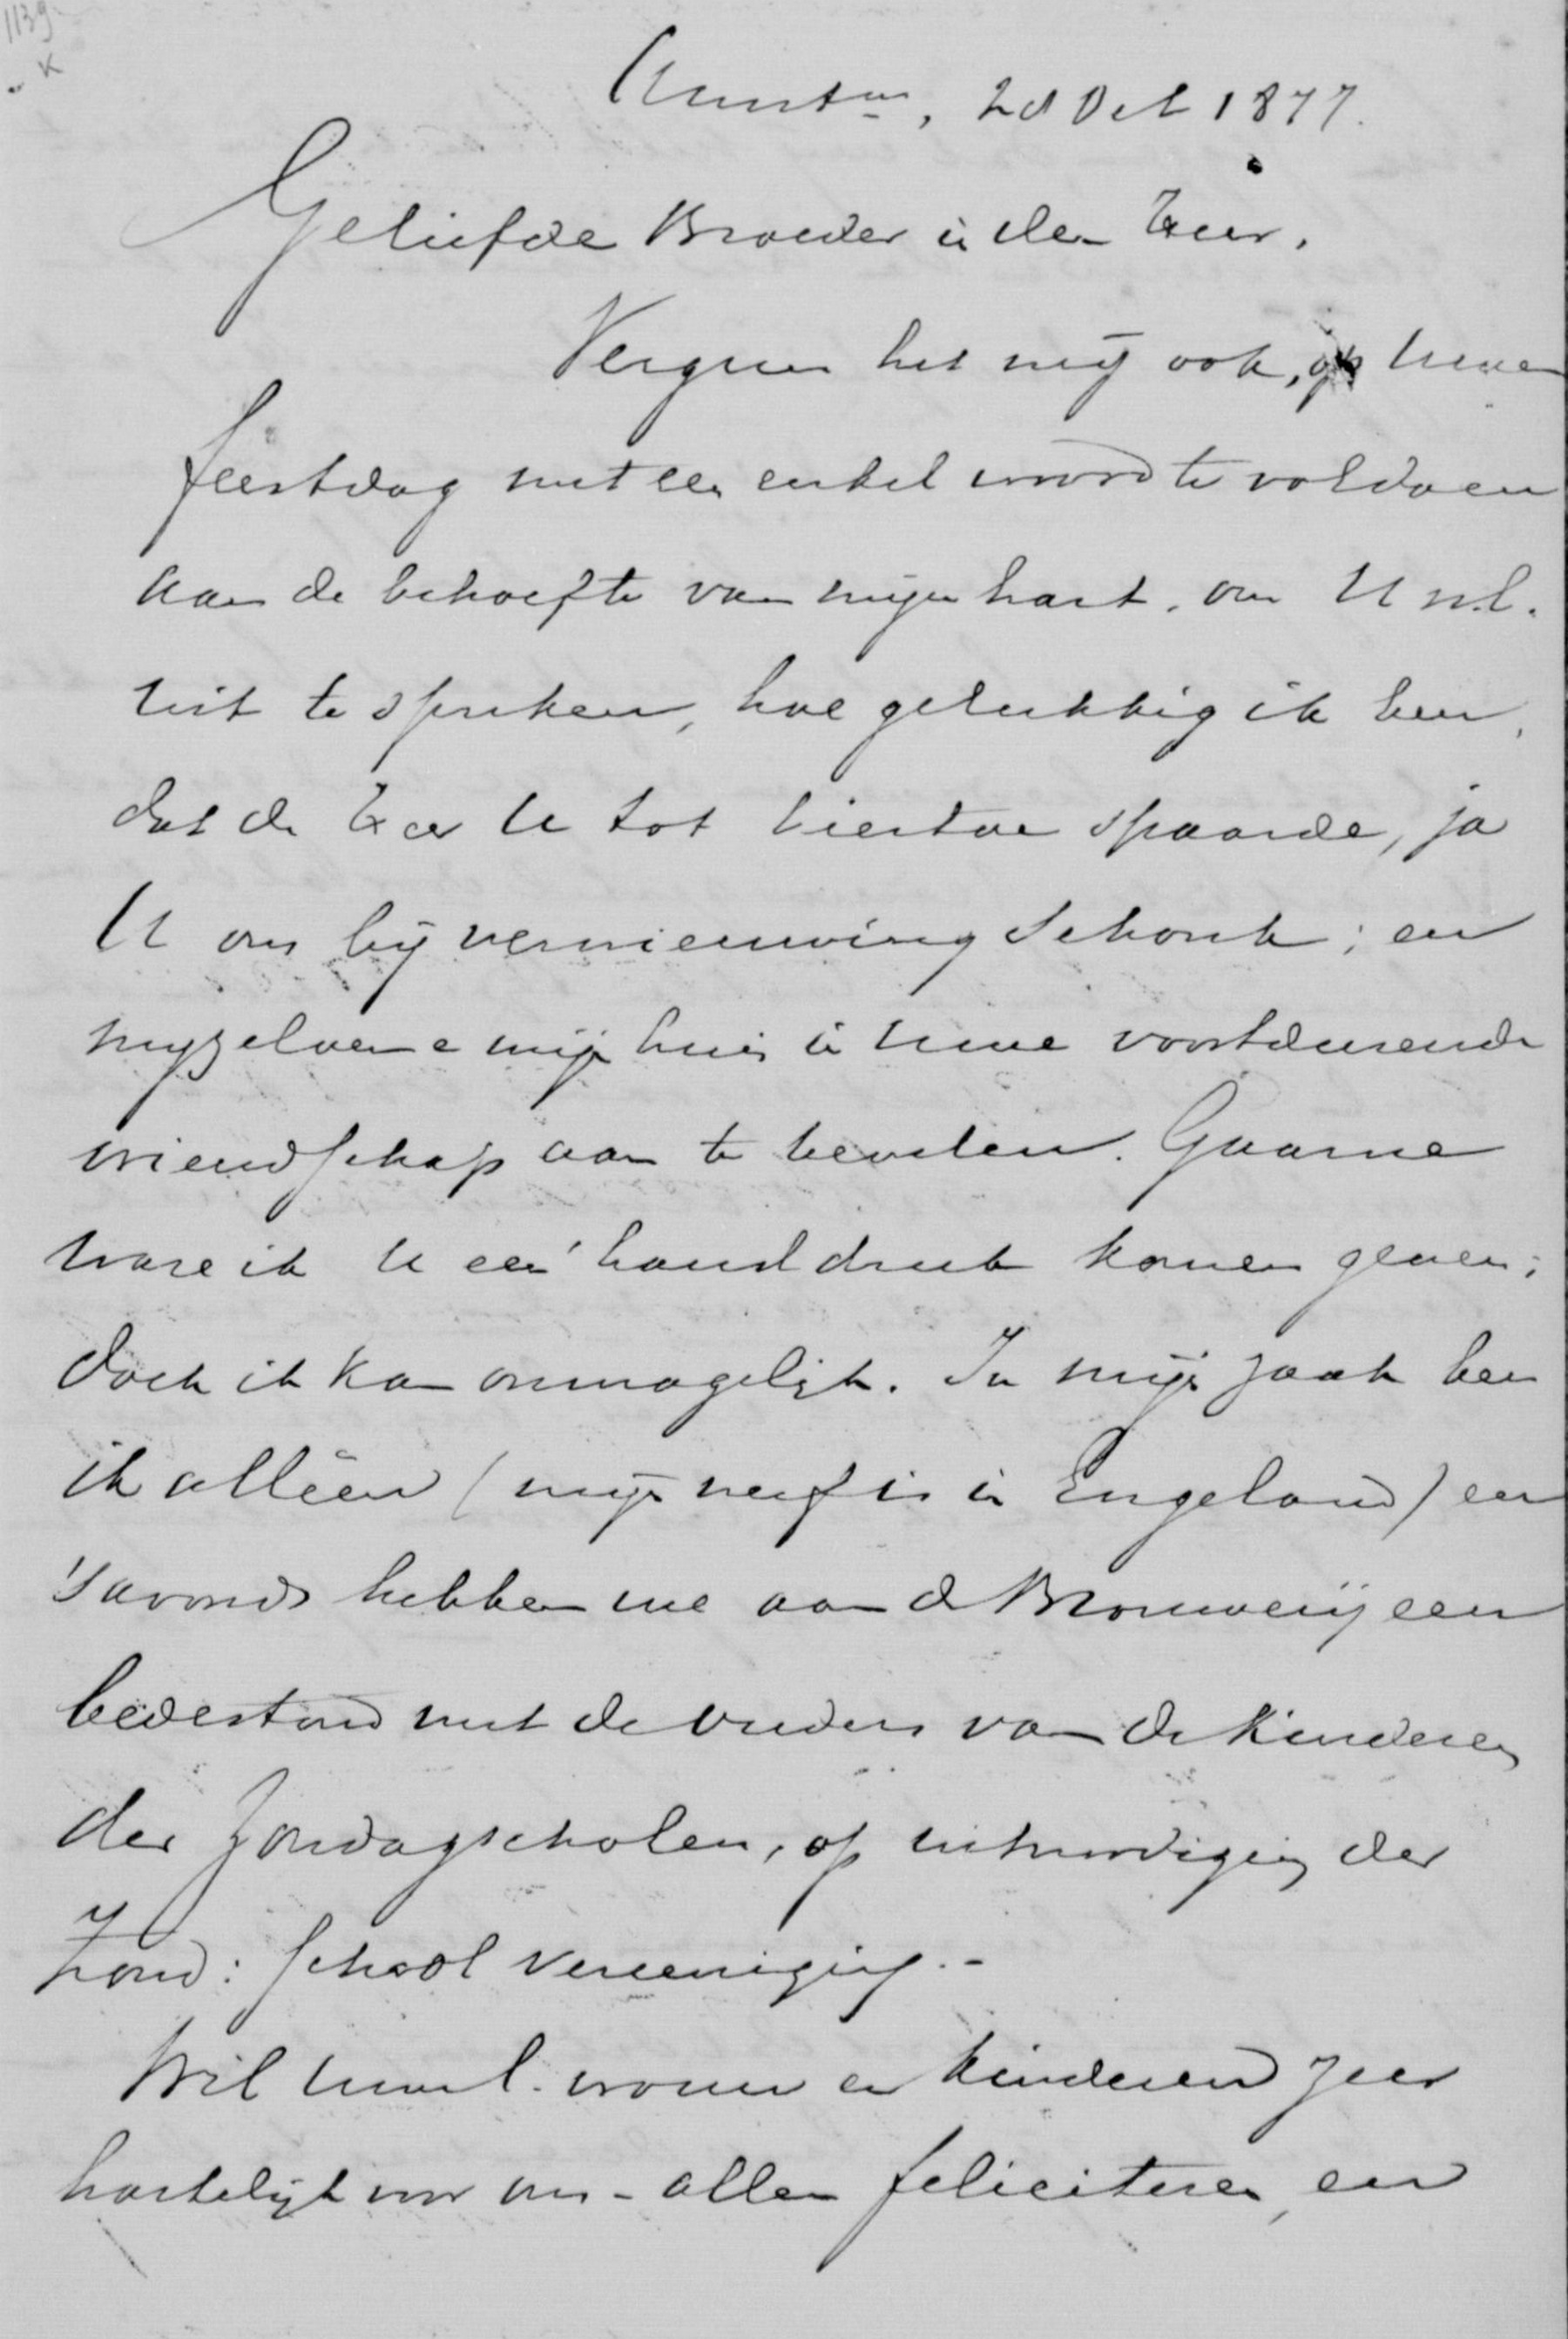 1139
K
Amstm, 28 Oct 1877.
Geliefde Broeder in den Heer,
Vergun het mij ook, op Uwen
feestdag met een enkel woord te voldoen
aan de behoefte van mijn hart, om U wel.
uit te spreken, hoe gelukkig ik ben,
dat de Heer U tot hiertoe spaarde, ja
U ons bij vernieuwing schonk; en
mijzelven e mijn huis in Uwe voortdurende
vriendschap aan te bevelen. Gaarne
ware ik U een handdruk komen geven;
doch ik kan onmogelijk. In mijn zaak ben
ik alléén (mijn neef is in Engeland) en
's avonds hebben we aan de Brouwerij een
bedestond met de ouders van de kinderen
der Zondagscholen, op uitnoodiging der
Zond: school vereeniging.-
Wil Uwe vrouw en kinderen zeer
hartelijk voor ons allen feliciteren, en